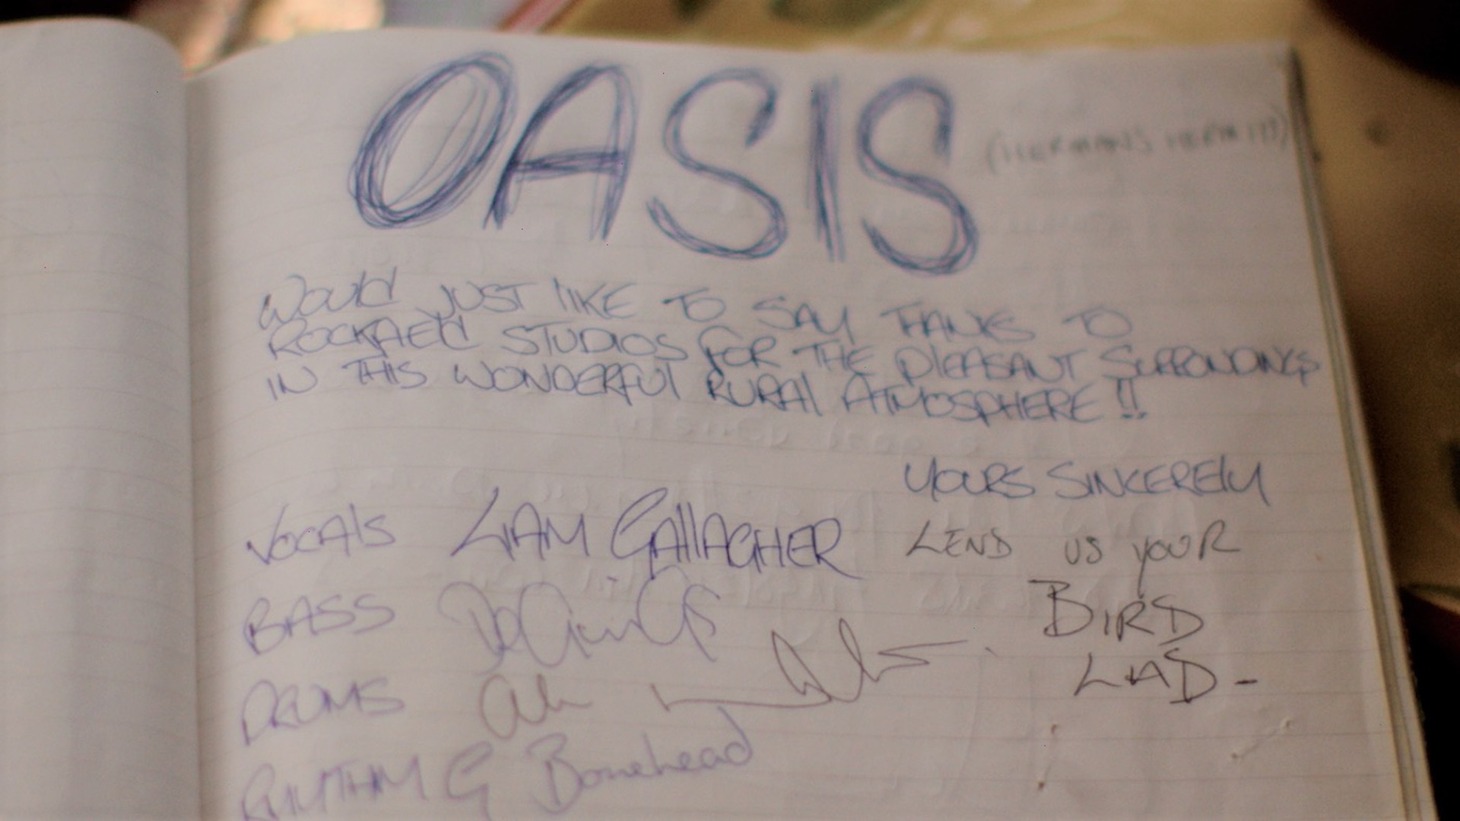 OASIS
(HERMANS HERMITS)
WOULD JUST LIKE TO SAY THANKS TO
ROCKFIELD STUDIOS FOR THE PLEASANT SURRONDINGS
IN THIS WONDERFUL RURAL ATMOSPHERE !!
YOURS SINCERELY
VOCALS LIAM GALLAGHER
LEND US YOUR
BIRD
LAD -
BASS
DRUMS
RHYTHM G Bonehead